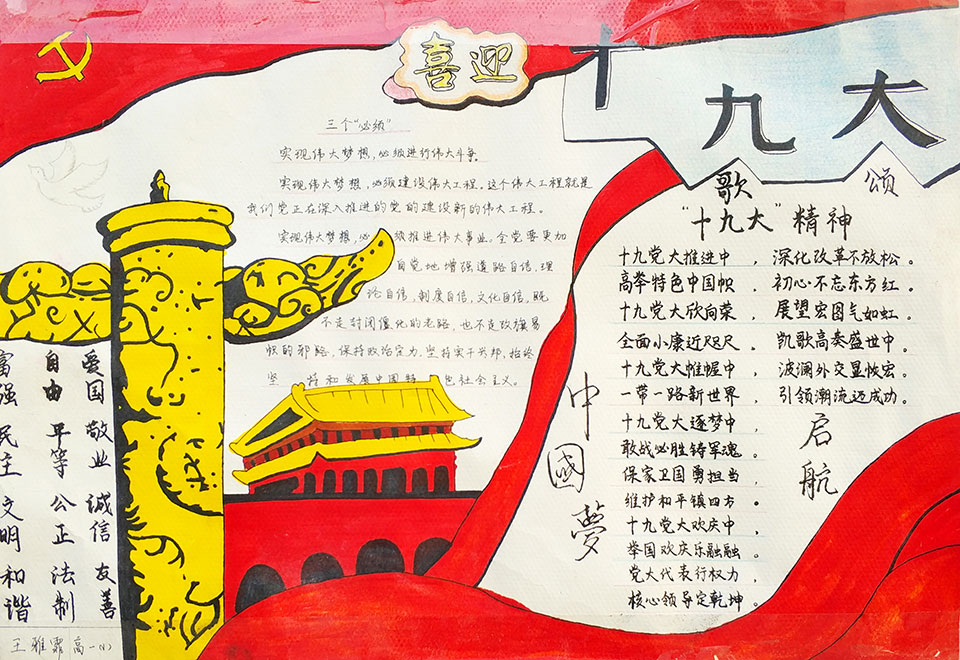 喜迎
十九大
三个“必须”
实现伟大梦想，必须进行伟大斗争。
实现伟大梦想，必须建设伟大工程。这个伟大工程就是
我们党正在深入推进的党的建设新的伟大工程。
实现伟大梦想，必须推进伟大事业。全党要更加
自觉地增强道路自信，理
论自信，制度自信，文化自信，既
不走封闭僵化的老路，也不走改旗易
帜的邪路，保持政治定力，坚持实干兴邦，始终
坚持和发展中国特色社会主义。
歌颂
“十九大”精神
十九党大推进中，深化改革不放松。
高举特色中国帜，初心不忘东方红。
十九党大欣向荣，展望宏图气如虹。
全面小康近咫尺，凯歌高奏盛世中。
十九党大帷幄中，波澜外交显恢宏。
一带一路新世界，引领潮流迈成功。
十九党大逐梦中，
敢战必胜铸军魂。
保家卫国勇担当，
维护和平镇四方。
十九党大欢庆中，
举国欢庆乐融融。
党大代表行权力，
核心领导定乾坤。
启航
中國夢
富强 民主 文明 和谐
自由 平等 公正 法制
爱国 敬业 诚信 友善
王雅霏 高一(1)